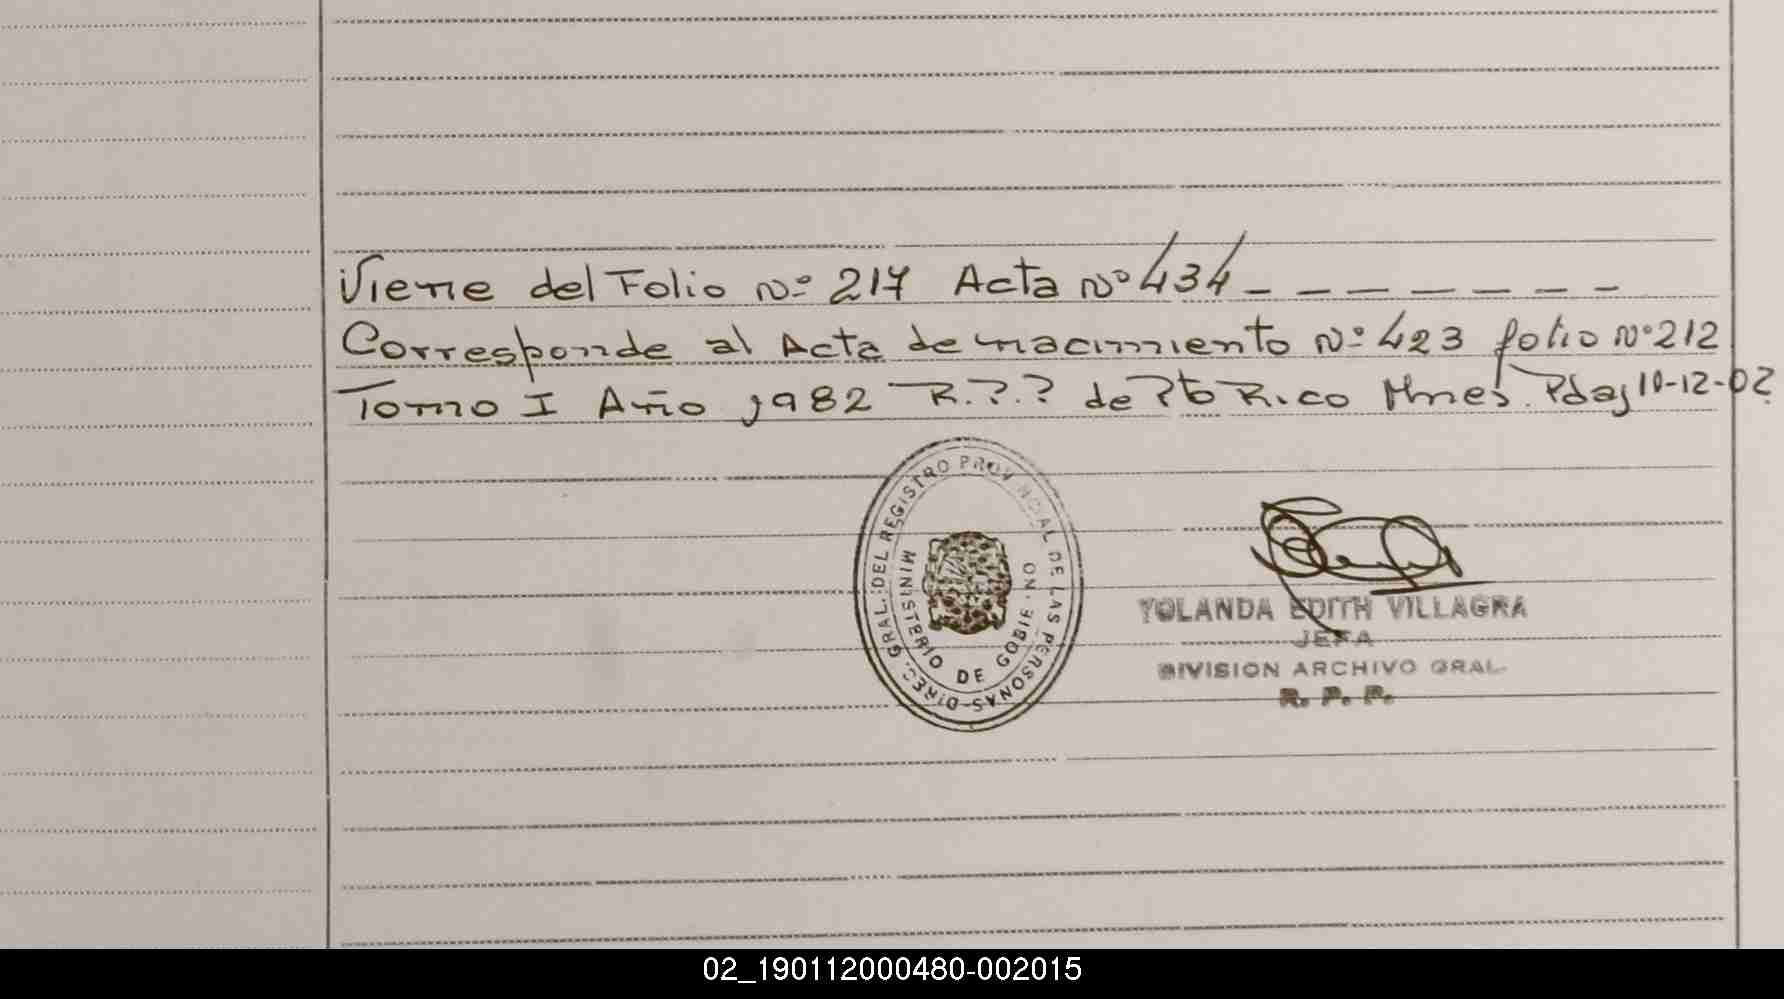 Viene del Folio Nº 217 Acta Nº 434 _ _ _ _ _ _ _
Corresponde al Acta de nacimiento Nº 423 folio Nº 212
Tomo I Año 1982 R.P.P. de Pto Rico Mnes. Pdas 10-12-02
DIREC. GRAL. DEL REGISTRO PROVINCIAL DE LAS PERSONAS-
MINISTERIO DE GOBIERNO
YOLANDA EDITH VILLAGRA
JEFA
DIVISION ARCHIVO GRAL.
R. P. P.
02_190112000480-002015